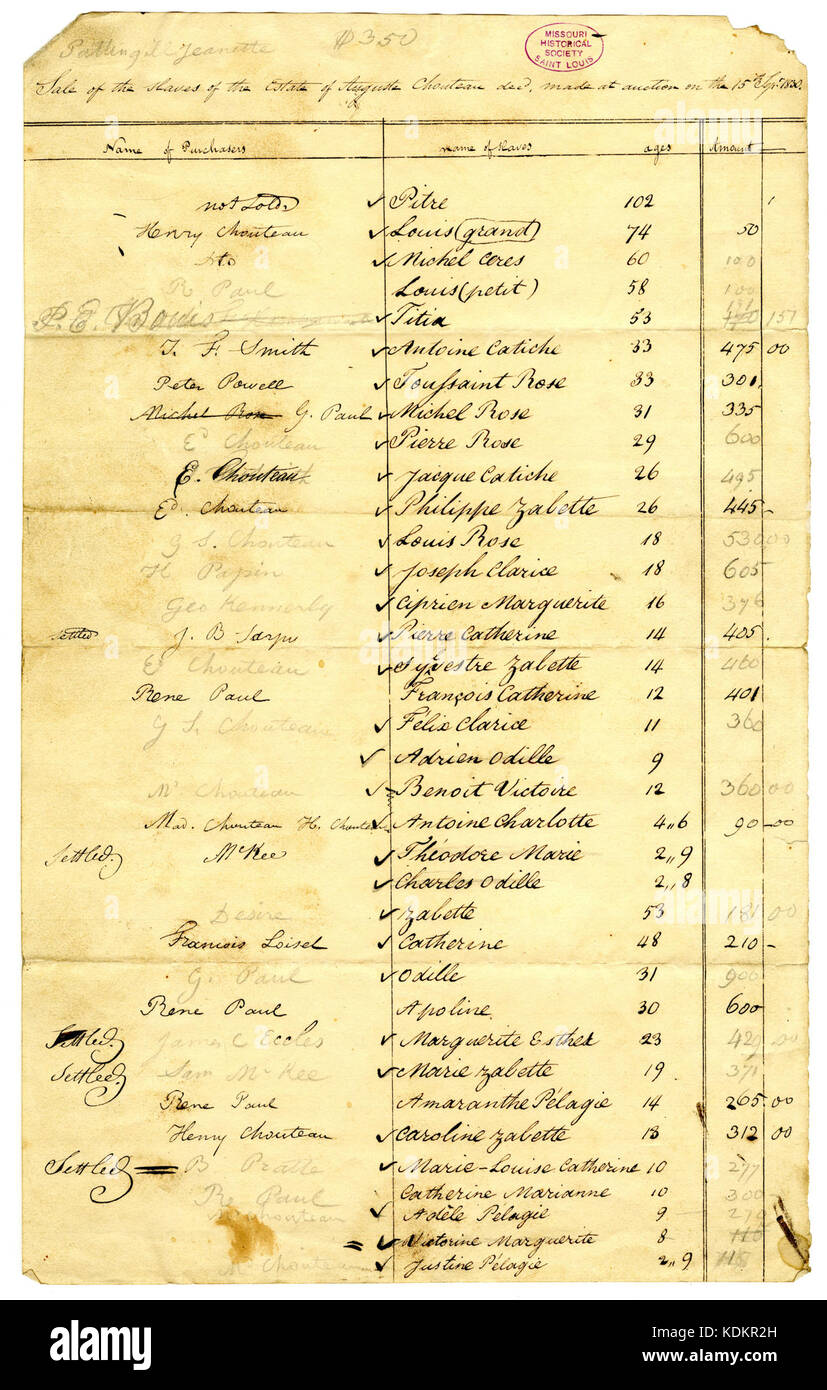 Jeanette $350
MISSOURI
HISTORICAL
SOCIETY
SAINT LOUIS
Sale of the slaves of the Estate of Auguste Chouteau decd, made at auction on the 15th
Name of Purchasers name of slaves ages Amount
not Sold ✓ Pitre 102
Henry Chouteau ✓ Louis (grand) 74 50
Dto ✓ Michel Ceres 60 100
R Paul Louis (petit) 58 100
P. E. ✓ Titia 53 151
T. F. Smith ✓ Antoine Catiche 33 475 00
Peter Powell ✓ Toussaint Rose 33 301
Michel Rose G. Paul ✓ Michel Rose 31 335
Ed Chouteau ✓ Pierre Rose 29 600
E. Chouteau ✓ Jacque Catiche 26 495
Ed. Chouteau ✓ Philippe Zabette 26 445 -
G S. Chouteau ✓ Louis Rose 18 530 00
H Papin ✓ Joseph Clarice 18 605
Geo Kennerly ✓ Ciprien Marguerite 16 376
settled J. B Sarpy ✓ Pierre Catherine 14 405
E Chouteau ✓ Sylvestre Zabette 14 460
Rene Paul François Catherine 12 401
G S. Chouteau ✓ Félix Clarice 11 360
✓ Adrien Odille 9
Chouteau ✓ Benoit Victoire 12 360 00
Mad. Chouteau H. Chouteau ✓ Antoine Charlotte 4,,6 90 -00
Settled. McKee ✓ Théodore Marie 2,,9
✓ Charles Odille 2,,8
Desire ✓ Zabette 53 181 00
Francois Loisel ✓ Catherine 48 210 -
G. Paul ✓ Odille 31 900
Rene Paul Apoline 30 600
Settled. James C Eccles ✓ Marguerite Esther 23 429 00
Settled Sam McKee ✓ Marie Zabette 19 371
Rene Paul Amaranthe Pélagie 14 265 00
Henry Chouteau ✓ Caroline Zabette 13 312 00
Settled B Pratte ✓ Marie-Louise Catherine 10 277
R. Paul Catherine Marianne 10 300
Chouteau ✓ Adèle Pélagie 9
= ✓ Victorine Marguerite 8
Chouteau ✓ Justine Pélagie 2,,9
alamy
Image ID: KDKR2H
www.alamy.com